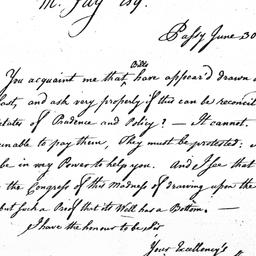 M. Jay Esq.
Passy June 30
Bills
You acquaint me that have appear'd drawn o
last, and ask very properly if this can be reconcil
ctates of Prudence and Policy? — It cannot.
unable to pay them, They must be protested:
be in my Power to help you. And I see that
the Congress of this Madness of drawing upon the
but such a Proof that its Well has a Bottom. —
I have the honour to be &c
Your Excellency's